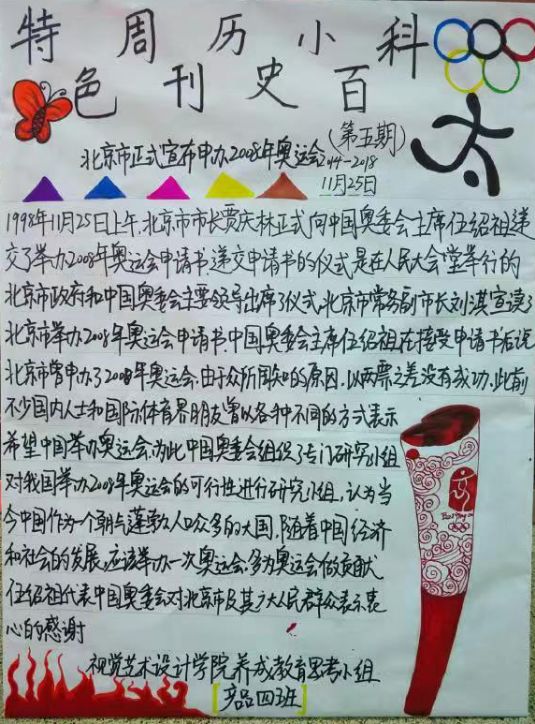 特周历小科
色刊史百
(第五期)
北京市正式宣布申办2008年奥运会
2014-2018
11月25日
1998年11月25日上午,北京市市长贾庆林正式向中国奥委会主席伍绍祖递
交了举办2008年奥运会申请书递交申请书的仪式是在人民大会堂举行的
北京市政府和中国奥委会主要领导出席了仪式,北京市常务副市长刘淇宣读了
北京市举办2008年奥运会申请书.中国奥委会主席伍绍祖在接受申请书后说
北京市曾申办了2008年奥运会.由于众所周知的原因,以两票之差没有成功.此前
不少国内人士和国际体育界朋友曾以各种不同的方式表示
希望中国举办奥运会,为此中国奥委会组织了专门研究小组
对我国举办2008年奥运会的可行性进行研究小组,认为当
今中国作为一个朝气蓬勃人口众多的大国,随着中国经济
和社会的发展,应该举办一次奥运会,多为奥运会做贡献
伍绍祖代表中国奥委会对北京市及其广大人民群众表示衷
心的感谢
视觉艺术设计学院养成教育思考小组
[产品四班]
Beijing